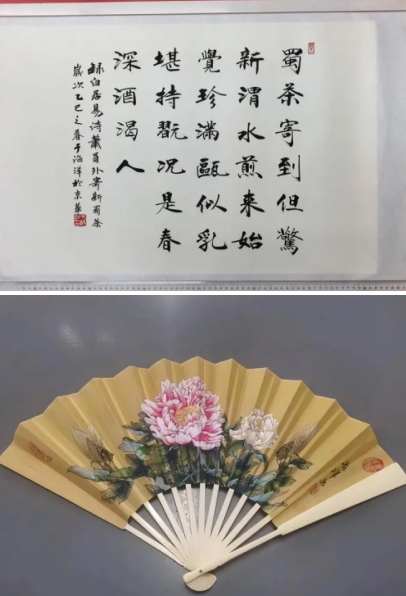 蜀茶寄到但驚
新渭水煎来始
覺珍滿甌似乳
堪持翫况是春
深酒渴人
録白居易詩蕭員外寄新蜀茶
歲次乙巳之春于海洋於京華